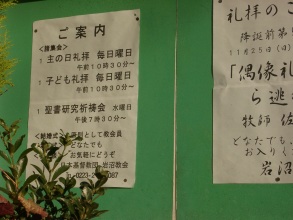 ご案内
<諸集会>
1 主の日礼拝 毎日曜日
午前10時30分~
1 子ども礼拝 毎日曜日
午前10時30分~
1 聖書研究祈祷会 水曜日
午後7時30分~
として教会員
どなたでも
お気軽にどうぞ
日本基督教団 岩沼教会
0223-2
087
礼拝のご
降誕前第
11月25日(日)
「偶像礼
ら逃
牧師 佐
どなたでも、
お入りく
岩沼